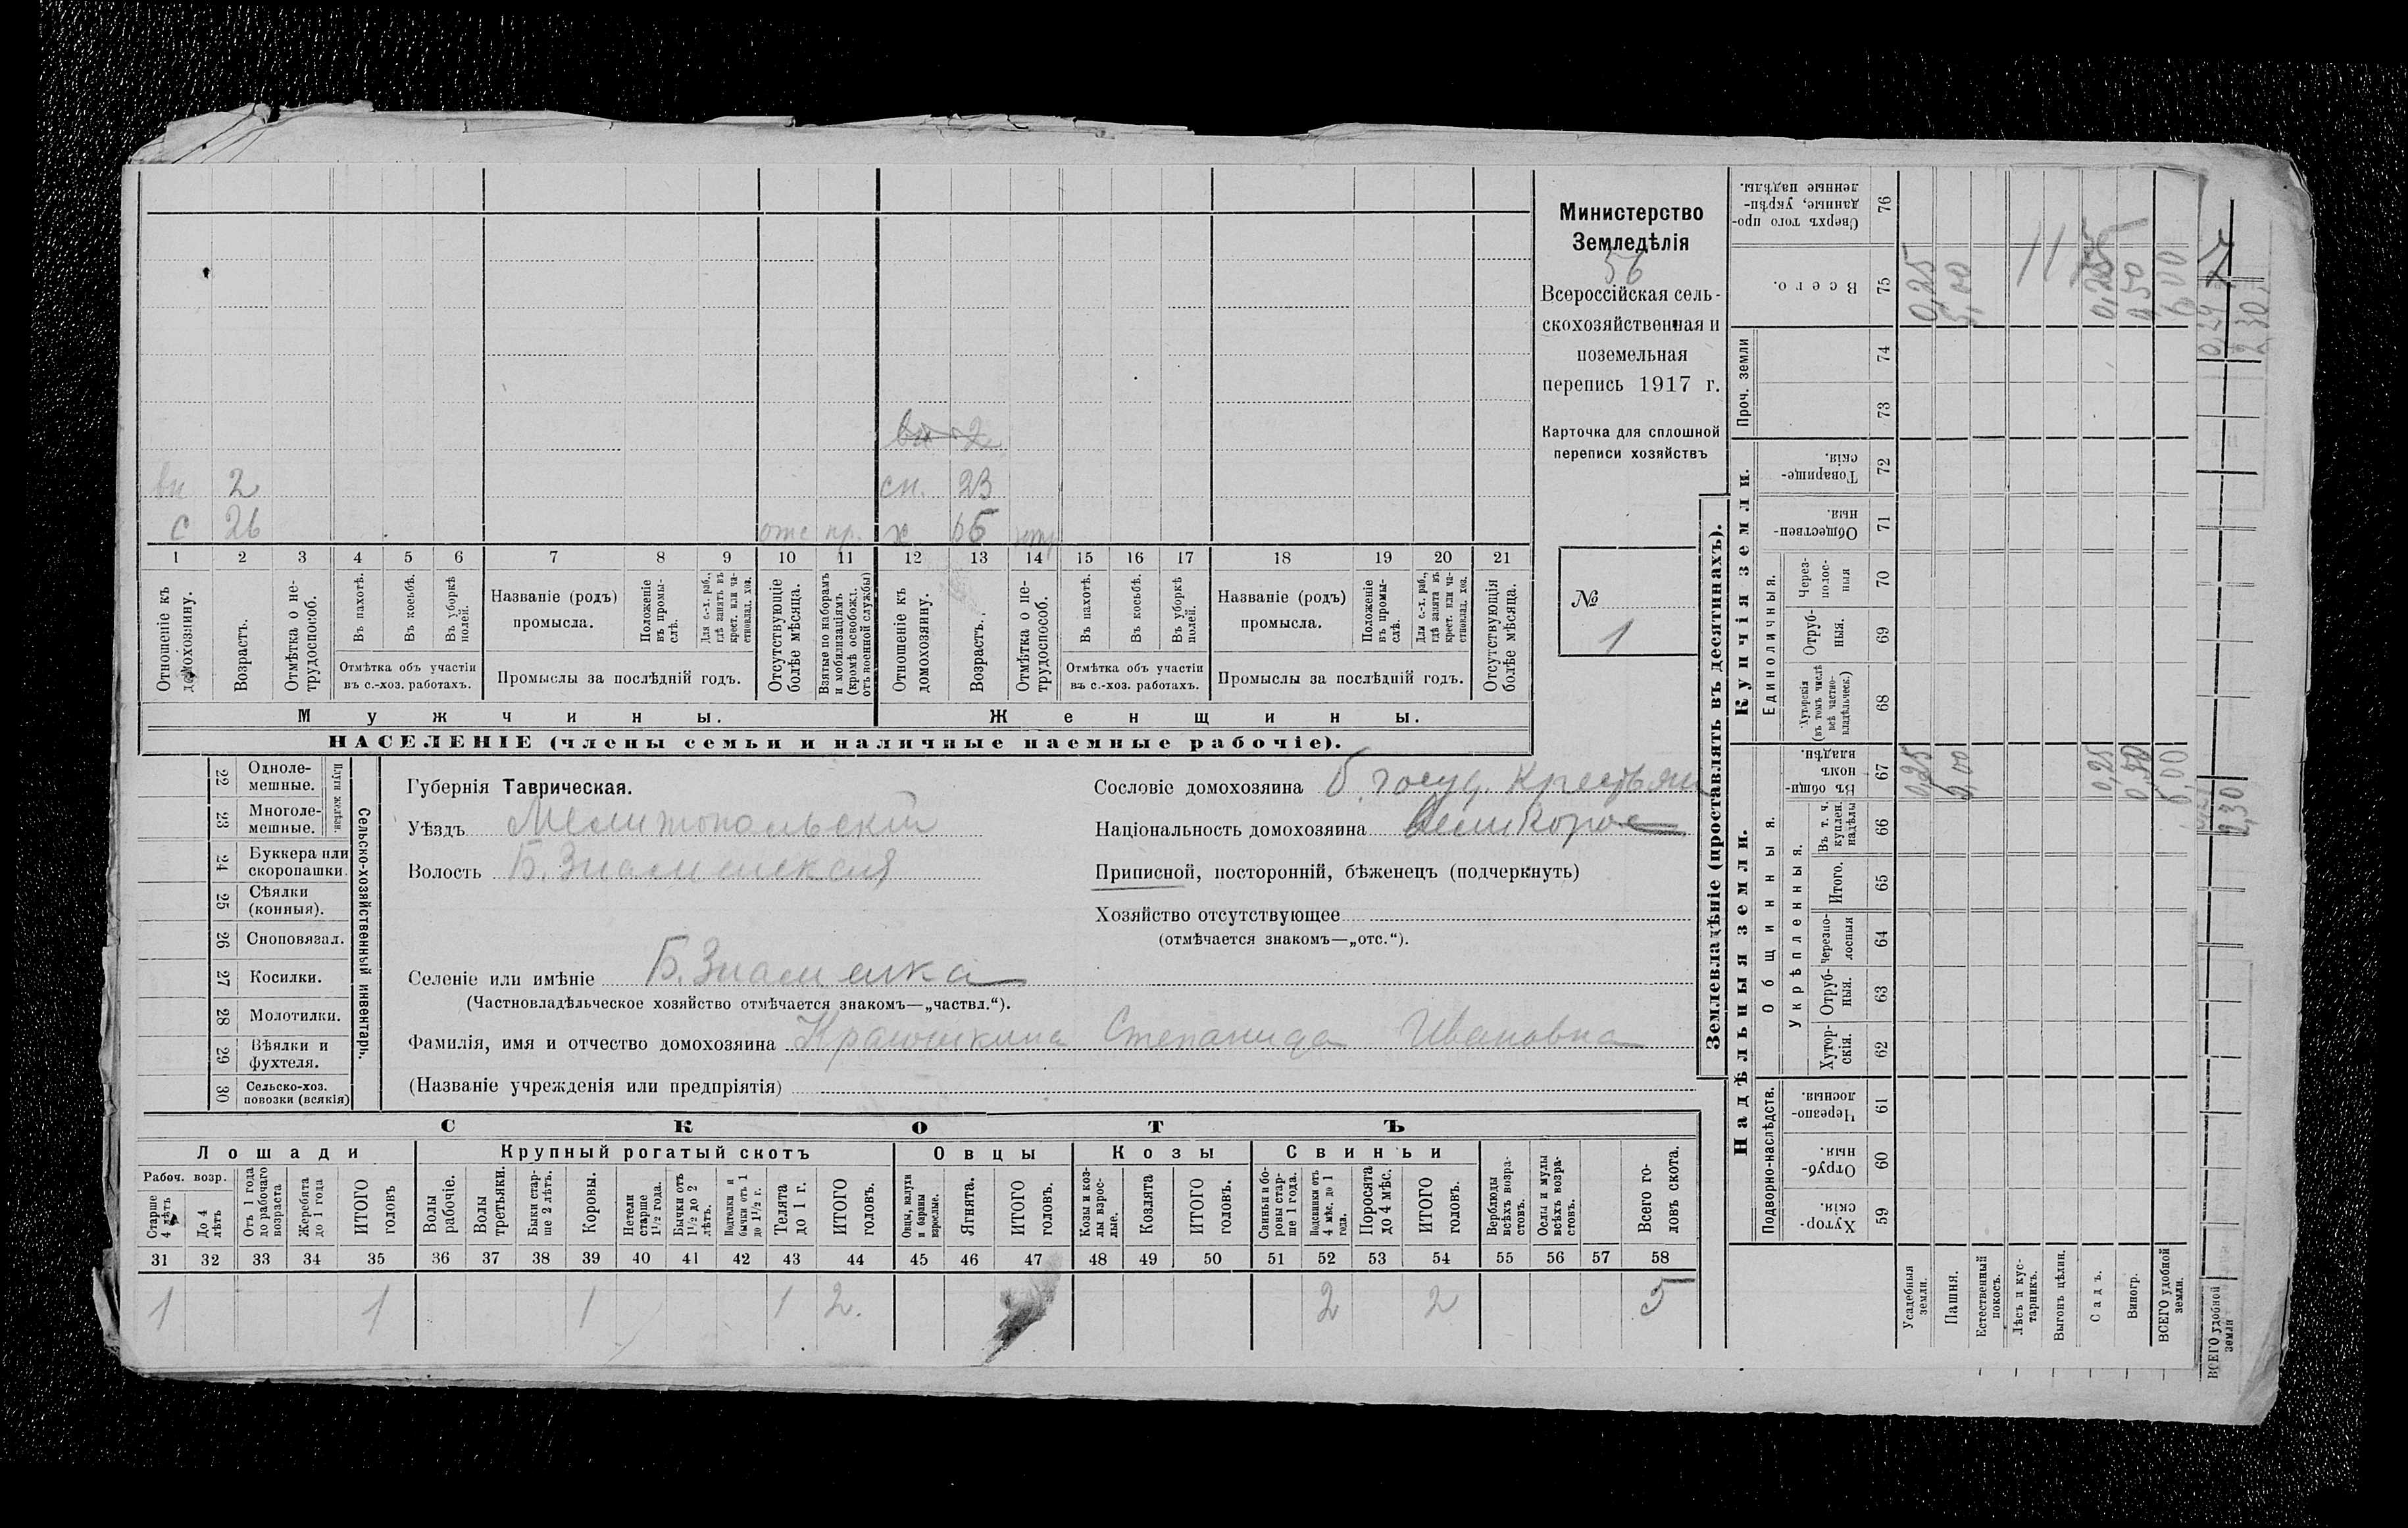 Министерство
Земледѣлія
56
Всероссійская сель-
скохозяйственная и
поземельная
перепись 1917 г.
Карточка для сплошной
переписи хозяйствъ
№
1
вн 2
вн 2 сн. 23
с 26 отс пр. х 65
1 2 3 4 5 6 7 8 9 10 11 12 13 14 15 16 17 18 19 20 21
Отношеніе къ домохозяину.
Возрастъ.
Отмѣтка о не-трудоспособ.
Въ пахотѣ.
Въ косьбѣ.
Въ уборкѣ полей.
Отмѣтка объ участіи
въ с.-хоз. работахъ.
Названіе (родъ)
промысла.
Положеніе въ промы-слѣ.
Для с.-х. раб., гдѣ занятъ въ крест. или ча-стновлад. хоз.
Промыслы за послѣдній годъ.
Отсутствующіе болѣе мѣсяца.
Взятые по наборамъ и мобилизаціямъ (кромѣ освобожд. отъ военной службы)
Отношеніе къ домохозяину.
Возрастъ.
Отмѣтка о не-трудоспособ.
Въ пахотѣ.
Въ косьбѣ.
Въ уборкѣ полей.
Отмѣтка объ участіи
въ с.-хоз. работахъ.
Названіе (родъ)
промысла.
Положеніе въ промы-слѣ.
Для с.-х. раб., гдѣ занята въ крест. или ча-стновлад. хоз.
Промыслы за послѣдній годъ.
Отсутствующія болѣе мѣсяца.
Мужчины. Женщины.
НАСЕЛЕНІЕ (члены семьи и наличные наемные рабочіе).
Сельско-хозяйственный инвентарь.
Плуги желѣзн.
22 Одноле-мешные.
23 Многоле-мешные.
24 Буккера или скоропашки.
25 Сѣялки (конныя).
26 Сноповязал.
27 Косилки.
28 Молотилки.
29 Вѣялки и фухтеля.
30 Сельско-хоз. повозки (всякія)
Губернія Таврическая.
Уѣздъ Мелитопольскій
Волость Б. Знаменская
Селеніе или имѣніе Б. Знаменка
(Частновладѣльческое хозяйство отмѣчается знакомъ—„частвл.“).
Фамилія, имя и отчество домохозяина Степанида Ивановна
(Названіе учрежденія или предпріятія)
Сословіе домохозяина б. госуд. Крестьян
Національность домохозяина великорос
Приписной, посторонній, бѣженецъ (подчеркнуть)
Хозяйство отсутствующее
(отмѣчается знакомъ—„отс.“).
СКОТЪ
Лошади Крупный рогатый скотъ Овцы Козы Свиньи
Рабоч. возр.
Старше 4 лѣтъ
До 4 лѣтъ
Отъ 1 года до рабочаго возраста
Жеребята до 1 года
ИТОГО головъ
Волы рабочіе.
Волы третьяки.
Быки стар-ше 2 лѣтъ.
Коровы.
Нетели старше 1½ года.
Бычки отъ 1½ до 2 лѣтъ.
Подтелки и бычки отъ 1 до 1½ г.
Телята до 1 г.
ИТОГО головъ.
Овцы, валухи и бараны взрослые.
Ягнята.
ИТОГО головъ.
Козы и коз-лы взрос-лые.
Козлята
ИТОГО головъ.
Свиньи и бо-ровы стар-ше 1 года.
Подсвинки отъ 4 мѣс. до 1 года.
Поросята до 4 мѣс.
ИТОГО головъ.
Верблюды всѣхъ возра-стовъ.
Ослы и мулы всѣхъ возра-стовъ.
Всего го-ловъ скота.
31 32 33 34 35 36 37 38 39 40 41 42 43 44 45 46 47 48 49 50 51 52 53 54 55 56 57 58
1 1 1 1 2. 2 2 5
Землевладѣніе (проставлять въ десятинахъ).
Надѣльныя земли. Купчія земли. Проч. земли
Подворно-наслѣдств.
Общинныя.
Укрѣпленныя.
Единоличныя.
Хутор-скія. 59
Отруб-ныя. 60
Черезпо-лосныя. 61
Хутор-скія. 62
Отруб-ныя. 63
Черезпо-лосныя 64
Итого. 65
Въ т. ч. куплен. надѣлы 66
Въ общи-номъ владѣн. 67
Хуторскія (въ томъ числѣ всѣ частно-владѣльческ.) 68
Отруб-ныя. 69
Через-полос-ныя 70
Обществен-ныя. 71
Товарище-скія. 72
73
74
Всего. 75
Сверхъ того про-данные, укрѣп-ленные надѣлы. 76
Усадебныя земли. 0,25 0,25
Пашня. 5,00 5,00
Естественный покосъ.
Лѣсъ и кус-тарникъ.
Выгонъ цѣлин.
Садъ. 0,25 0,25
Виногр. 0,50 0,50
ВСЕГО удобной земли. 6,00 6,00
ВСЕГО удобной земли
0,29
2,30
2,30